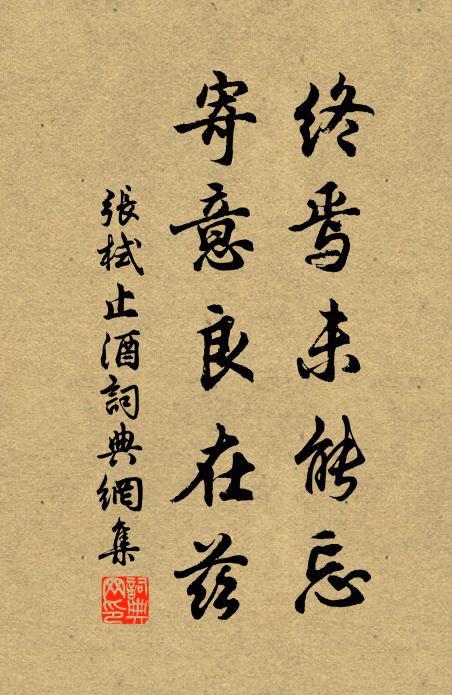 終焉未能忘
寄意良在茲
張栻止酒詞典網集
詞典網印